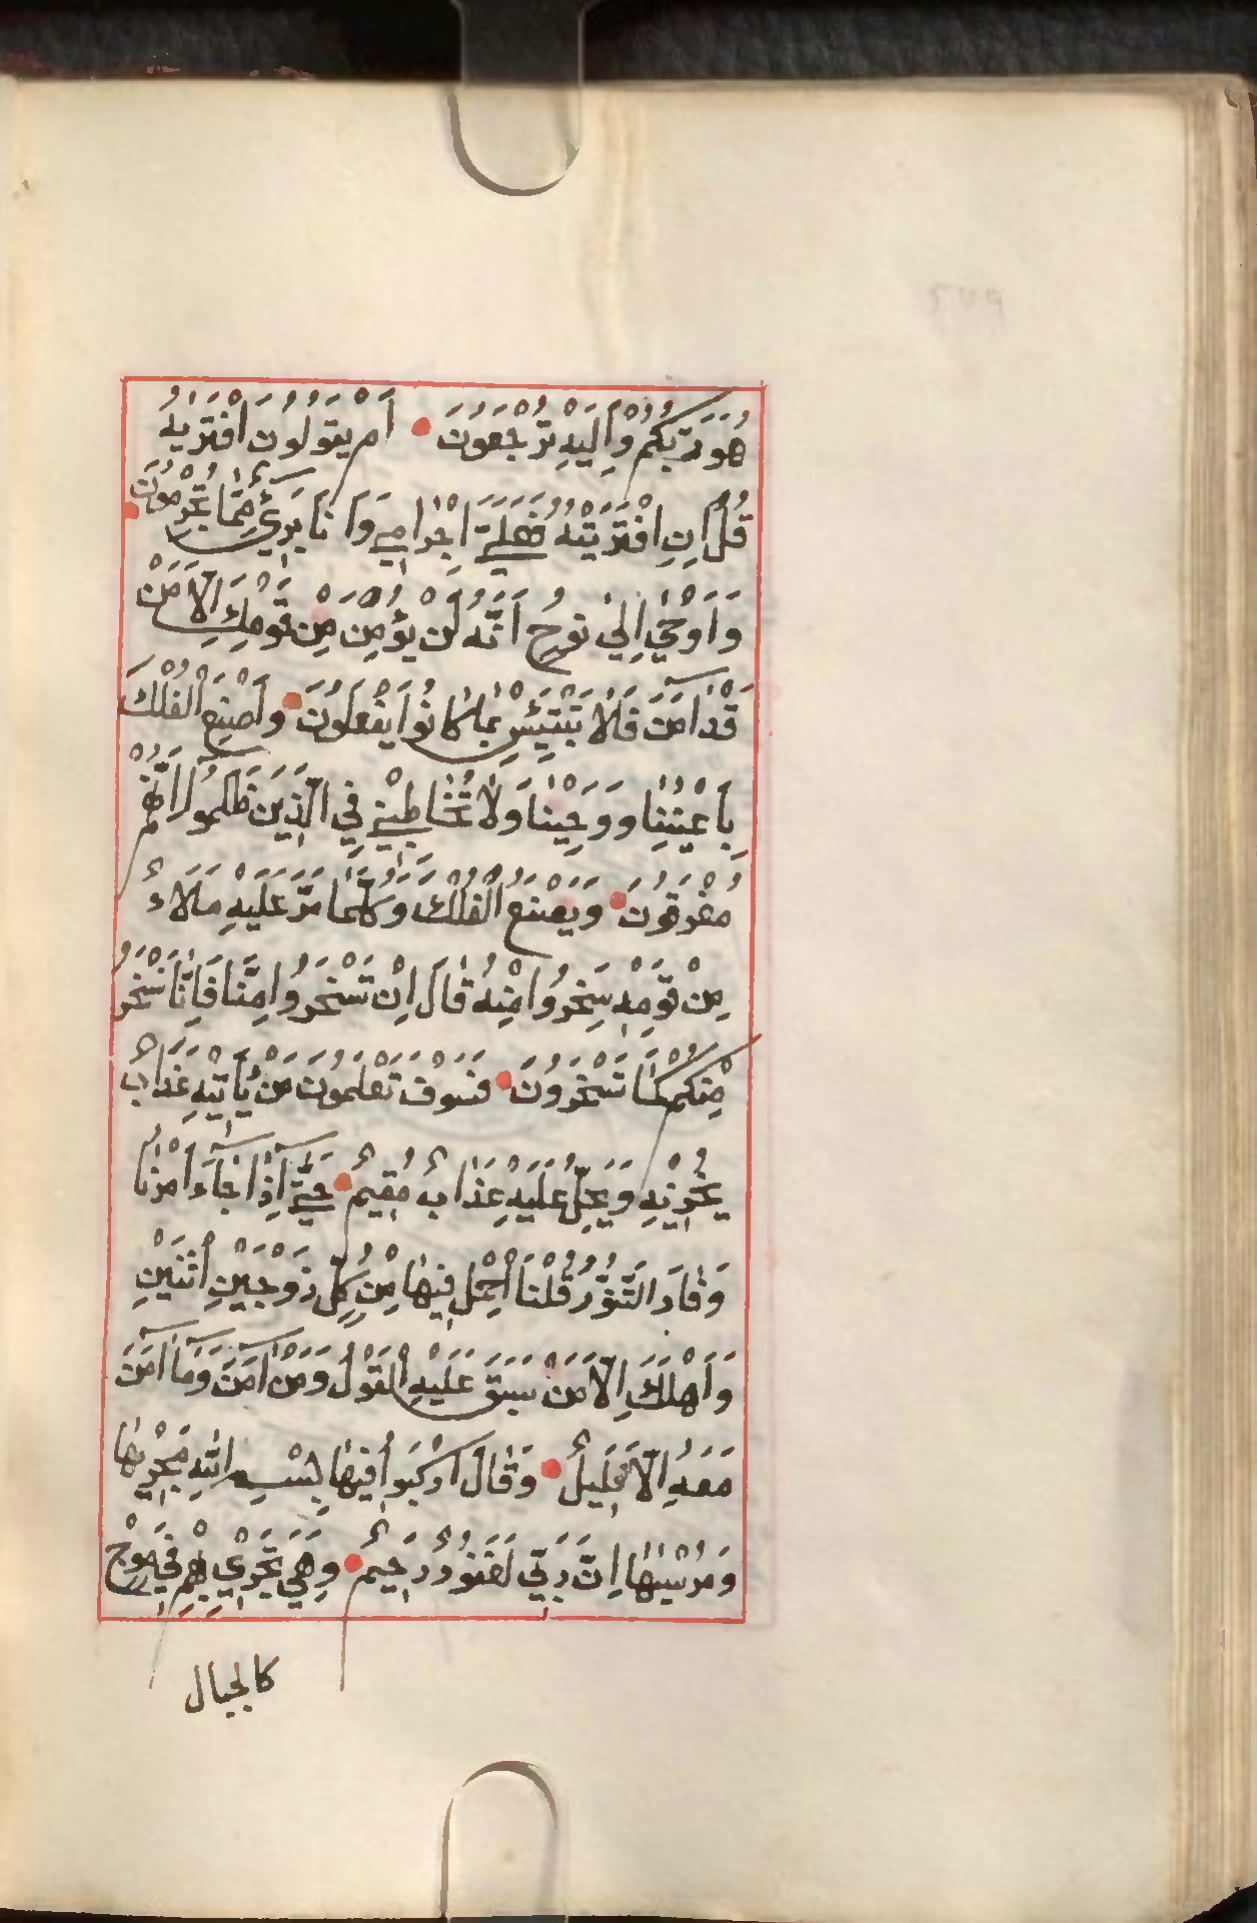 هُوَ رَبُّكُمْ وَاِلَيْهِ تُرْجَعُونَ اَمْ يَقُولُونَ افْتَرٰيهُ
قُلْ اِنِ افْتَرَيْتُهُ فَعَلَيَّ اِجْرَامِي وَاَنَا بَرِيءٌ مِمَّا تُجْرِمُونَ
وَاُوحِيَ اِلٰي نُوحٍ اَنَّهُ لَنْ يُؤْمِنَ مِنْ قَوْمِكَ اِلَّا مَنْ
قَدْ اٰمَنَ فَلَا تَبْتَئِسْ بِمَا كَانُوا يَفْعَلُونَ وَاصْنَعِ الْفُلْكَ
بِاَعْيُنِنَا وَوَحْيِنَا وَلَا تُخَاطِبْنِي فِي الَّذِينَ ظَلَمُوا اِنَّهُمْ
مُغْرَقُونَ وَيَصْنَعُ الْفُلْكَ وَكُلَّمَا مَرَّ عَلَيْهِ مَلَاءٌ
مِنْ قَوْمِهِ سَخِرُوا مِنْهُ قَالَ اِنْ تَسْخَرُوا مِنَّا فَاِنَّا نَسْخَرُ
مِنْكُمْ كَمَا تَسْخَرُونَ فَسَوْفَ تَعْلَمُونَ مَنْ يَأْتِيهِ عَذَابٌ
يُخْزِيهِ وَيَحِلُّ عَلَيْهِ عَذَابٌ مُقِيمٌ حَتّٰي اِذَا جَاءَ اَمْرُنَا
وَفَارَ التَّنُّورُ قُلْنَا احْمِلْ فِيهَا مِنْ كُلٍّ زَوْجَيْنِ اثْنَيْنِ
وَاَهْلَكَ اِلَّا مَنْ سَبَقَ عَلَيْهِ الْقَوْلُ وَمَنْ اٰمَنَ وَمَا اٰمَنَ
مَعَهُ اِلَّا قَلِيلٌ وَقَالَ ارْكَبُوا فِيهَا بِسْمِ اللّٰهِ مَجْرٰيهَا
وَمُرْسٰيهَا اِنَّ رَبِّي لَغَفُورٌ رَحِيمٌ وَهِيَ تَجْرِي بِهِمْ فِي مَوْجٍ
كالجبال